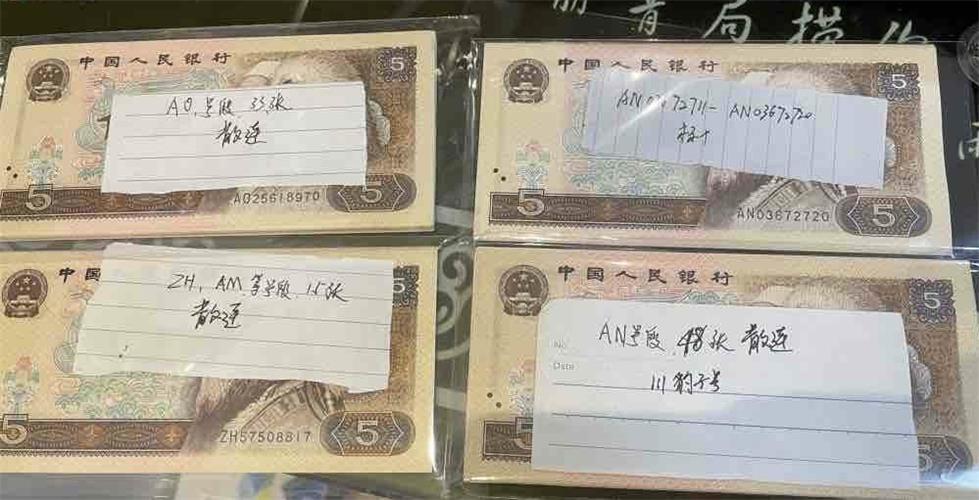 肯局捞仍
中国人民银行
5
AQ号段 33张
散连
5
AQ25618970
5
中国人民银行
5
AN03672711- AN03672720
标十
5
AN03672720
5
中国
ZH, AM 等号段, 15张
散连
5
ZH57508817
5
中国人民银行
5
No.
AN号段, 48张 散连
Date
111豹子号